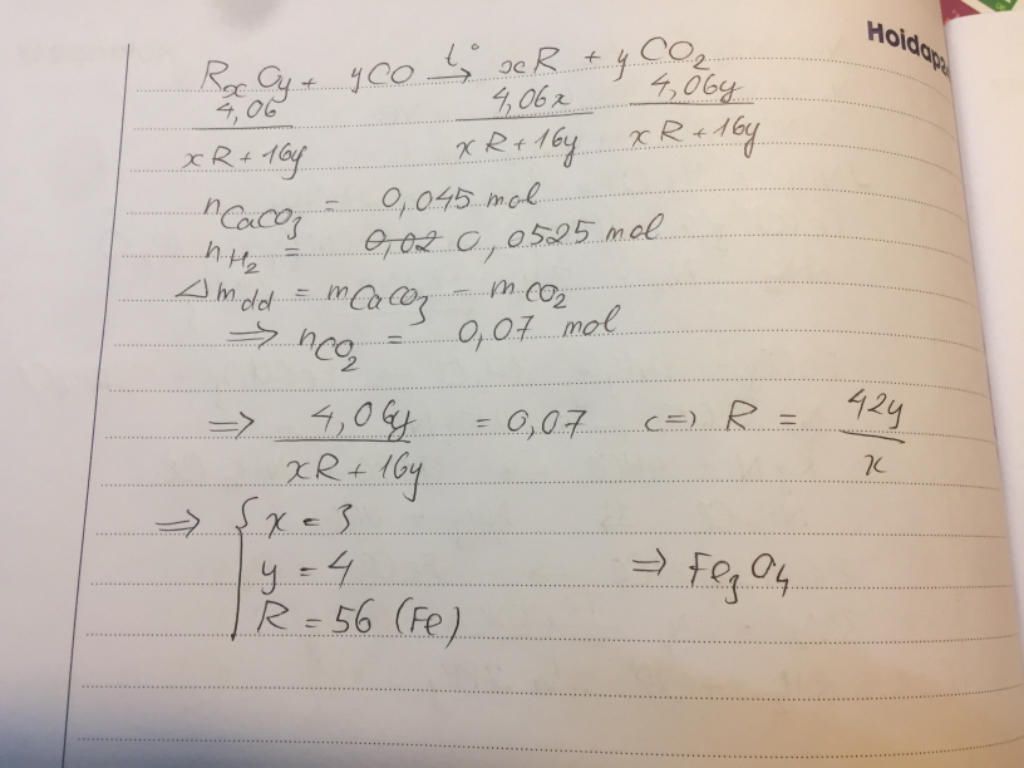 Hoidap
RxOy + yCO t°→ xR + yCO2
4,06/(xR + 16y) 4,06x/(xR + 16y) 4,06y/(xR + 16y)
nCaCO3 = 0,045 mol
nH2 = 0,02 0,0525 mol
Δmdd = mCaCO3 - mCO2
⇒ nCO2 = 0,07 mol
⇒ 4,06y/(xR + 16y) = 0,07 <=> R = 42y/x
⇒ { x = 3
y = 4 ⇒ Fe3O4
R = 56 (Fe)